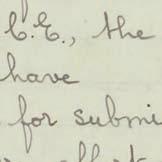 C.E., the
have
for submi